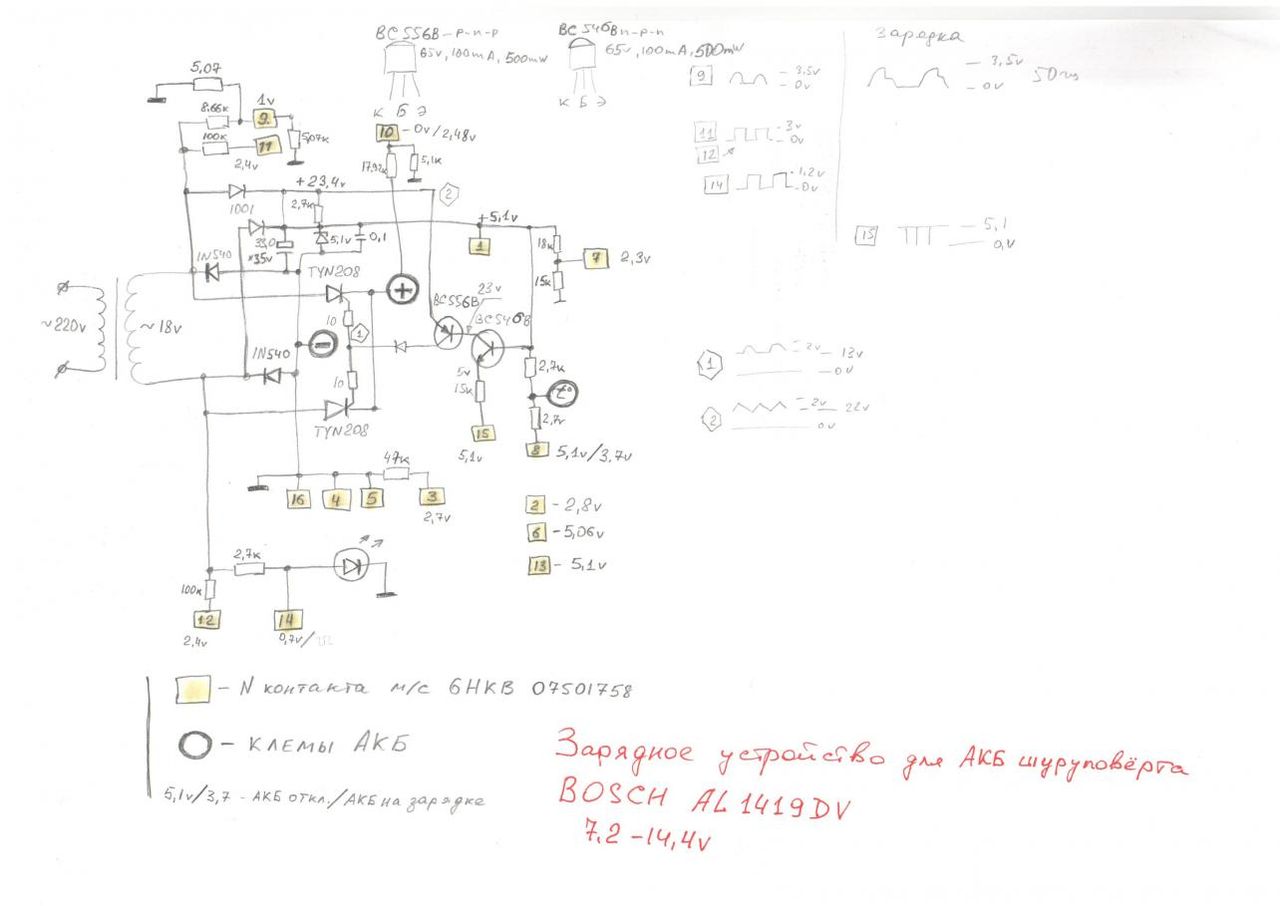 BC556B-p-n-p
65v, 100mA, 500mw
К Б Э
BC546B n-p-n
65v, 100mA, 500mw
К Б Э
Зарядка
3,5v
0v
9
3,5v
0v
11
3v
0v
12
14
1,2v
0v
15
5,1
0v
5,07
8.66к
1v
9
5,07к
100к
11
2,4v
10
-0v/2,48v
5,1к
+23,4v
2
1001
2,7к
+5,1v
33,0
×35v
5,1v
0,1
1
18к
7
2,3v
15к
1N540
TYN208
+
BC556B
23v
BC546B
~220v
~18v
10
1
-
1N540
10
TYN208
5v
15к
2,7к
t°
2,7v
15
5,1v
8
5,1v/3,7v
1
2v
13v
0v
2
2v
22v
0v
47к
16
4
5
3
2,7v
2
-2,8v
6
-5,06v
13
- 5,1v
2,7к
100к
12
2,4v
14
0,7v/
- N контакта м/с 6НКВ 07501758
- клемы АКБ
5,1v/3,7 - АКБ откл./АКБ на зарядке
Зарядное устройство для АКБ шуруповёрта
BOSCH AL1419DV
7,2-14,4v